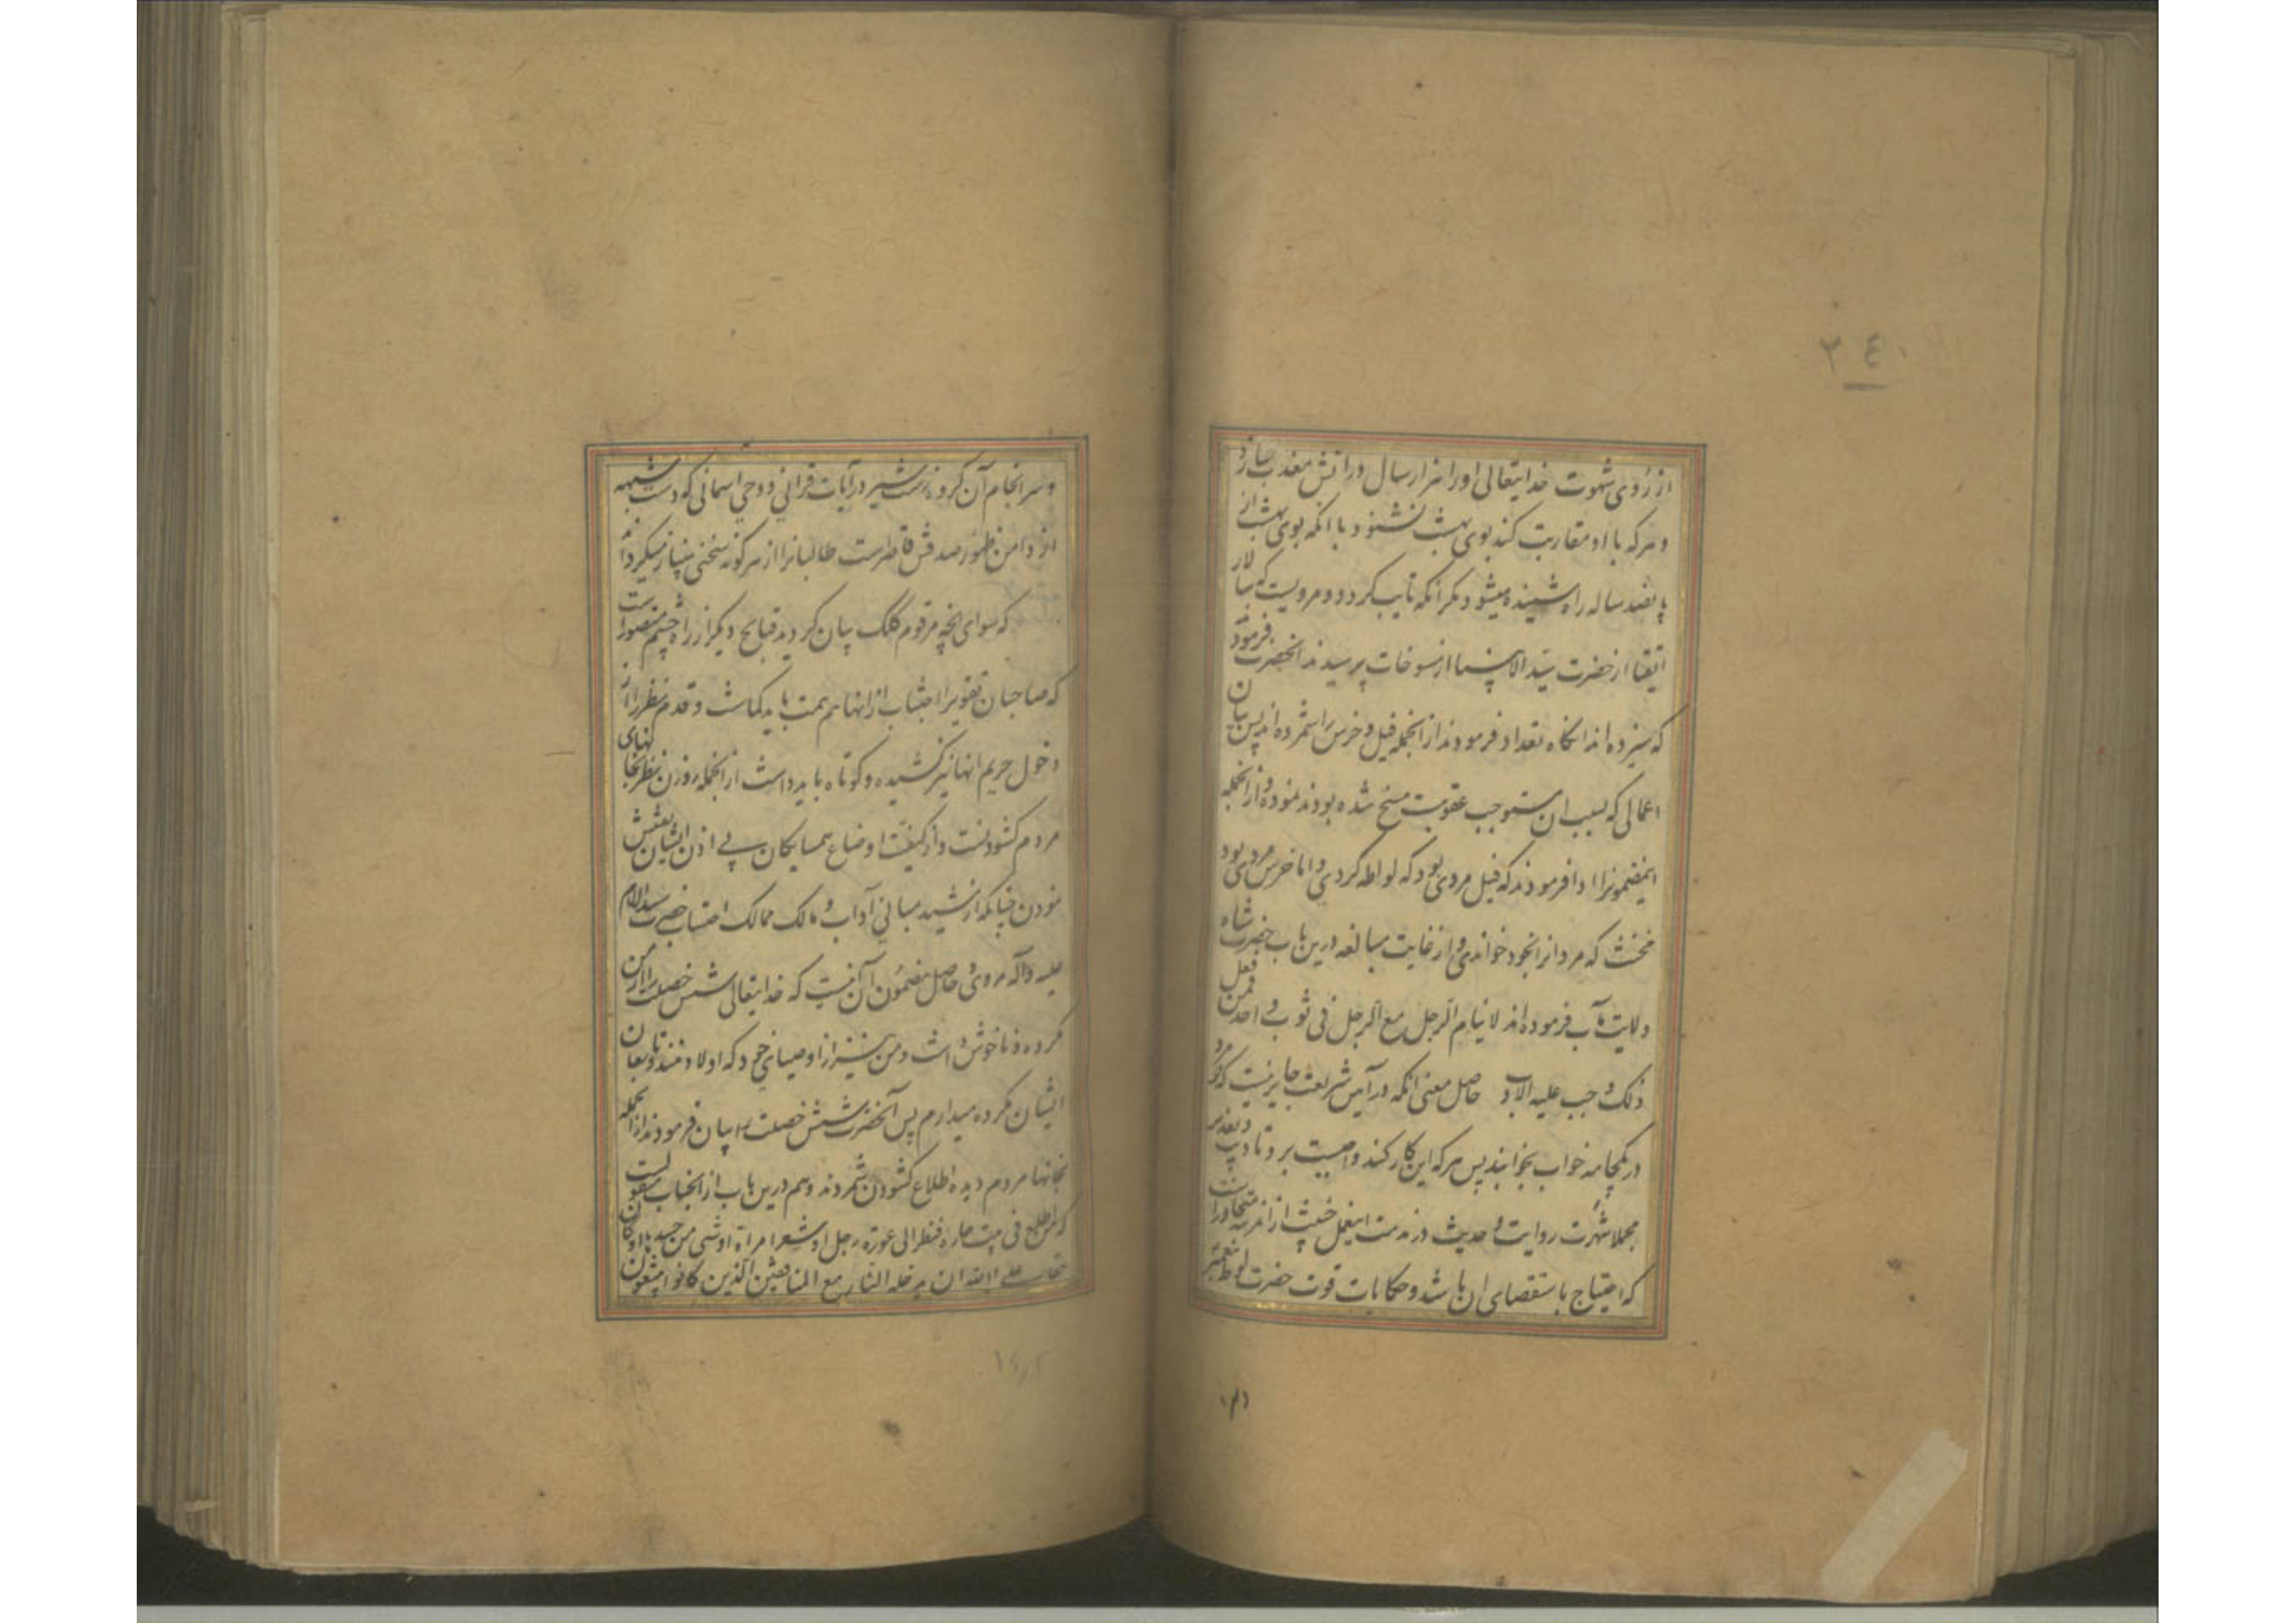 ٢٤٠
از روی شهوت خدایتعالی اورا هزار سال در آتش معذب سازد
و هر که با او مقاربت کند بوی بهشت نشنود با آنکه بوی بهشت از
پانصد ساله راه شنیده میشود مکر آنکه تایب کردد و مرویست که سالار
اتقیا از حضرت سید الانبیا از مسوخات پرسیدند آنحضرت فرمود
که سیزده اند آنکاه تعداد فرمودند از انجمله فیل و خرس را شمرده اند پس بیان
اعمالی که بسبب ان مستوجب عقوبت مسخ شده بودند نموده و از انجمله
اینمضمونرا ادا فرمودند که فیل مردی بود که لواطه کردی و اما خرس مردی بود
مخنث که مردانرا بخود خواندی و از غایت مبالغه درین باب حضرت شاه
ولایت مآب فرموده اند لا ینام الرجل مع الرجل فی ثوب واحد فمن فعل
ذلک وجب علیه الادب حاصل معنی آنکه در آیین شریعت جایز نیست که دو مرد
در یکجامه خواب بخوابند پس هر که این کار کند واجبست برو تادیب و تعذیر
مجملا شهرت روایت و حدیث در مذمت اینعمل خبیث از ان مرتبه متجاوز است
که احتیاج باستقصای ان باشد و حکایات قوت حضرت لوط پیغمبر
و سر انجام آن کروه زشت سیر در آیات قرانی و وحی اسمانی که دست شبهه
از دامن ظهور صدقش قاصرست طالبانرا از هر کونه سخنی بینیاز میکرداند
که سوای انچه مرقوم کلک بیان کردید قبایح دیکر از راه چشم متصور است
که صاحبان تقویرا اجتناب از انها هم همت باید کماشت و قدم نظر را از
دخول حریم انها نیز کشیده و کوتاه باید داشت از انجمله روزن نظر بخانهای
مردم کشودنست و از کیفیت اوضاع همسایکان بی اذن ایشان تفتیش
نمودن چنانکه از مشید مبانی آداب و مالک ممالک احتساب حضرت سید الانام
علیه واله مروی و حاصل مضمون آن نیست که خدایتعالی شش خصلت را از من
مکروه و ناخوش داشت و من نیز از اوصیای خود که اولاد منند و تابعان
ایشان مکروه میدارم پس آنحضرت شش خصلت را بیان فرمودند از انجمله
بخانها مردم دیده اطلاع کشودن شمردند و هم درین باب از انجناب منقولست
که من اطلع فی بیت جاره فنظر الی عورة رجل او شعر امراة او شیء من جسدها کان
حقا علی الله ان یدخله النار مع المنافقین الذین کانوا یتبعون